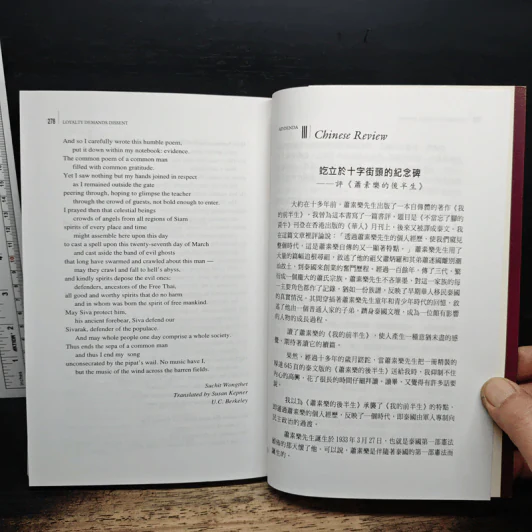 278 LOYALTY DEMANDS DISSENT
And so I carefully wrote this humble poem,
put it down in my notebook: evidence.
The common poem of a common man
filled with common gratitude.
Yet is nothing but my hands joined in respect
as I remained outside the gate
peering through, hoping to glimpse the teacher
through the crowd of guests, not bold enough to enter.
I prayed then that celestial beings
crowds of angels from all regions of Siam
spirits of every place and time
might assemble here upon this day
to cast a spell upon this twenty-seventh day of March
and cast aside the band of evil ghosts
that long have swarmed and crawled about this man —
may they crawl and fall to hell's abyss,
and kindly spirits depose the evil ones:
defenders, ancestors of the Free Thai,
all good and worthy spirits that do no harm
and in whom was been the spirit of free mankind.
May Siva protect him,
his ancient forebear, Siva defend out
Sivarak, defender of the populace.
And may whole people one day comprise a whole society.
Thus ends the sepa of a common man
and thus I end my wing
unconsecrated by the pipat's wail. No music have I,
but the music of the wind across the barren fields.
Suchit Wongthet
Translated by Susan Kepner
U.C. Berkeley
ADDENDA III Chinese Review
訖立於十字街頭的紀念碑
——評《蕭素樂的後半生》
大約在十多年前，蕭素樂先生出版了一本自傳體的著作《我
的前半生》，我曾為這本書寫了一篇書評，題目是《不當忘了腳的
在這篇文章裡評論說：「透過蕭素樂先生的個人經歷，使我們窺見
整個時代，這是蕭素樂自傳的又一顯著特點。」蕭素樂先生用了
的人物的成長過程。
讀了蕭素樂的《我的前半生》，使人產生一種意猶未盡的感
覺，期待著讀它的續篇。
果然，經過十多年的歲月蹉跎，當蕭素樂先生把一冊精裝的
厚達645頁的泰文版的《蕭素樂的後半生》送給我時，我抑制不住
內心的高興，花了很長的時間仔細拜讀，讀畢，又覺得有許多話要
說。
我以為《蕭素樂的後半生》承襲了《我的前半生》的特點，
即通過蕭素樂的個人經歷，反映了一個時代，即泰國由軍人專制向
民主政治的過渡。
蕭素樂先生誕生於1933年3月27日，也就是泰國第一部憲法